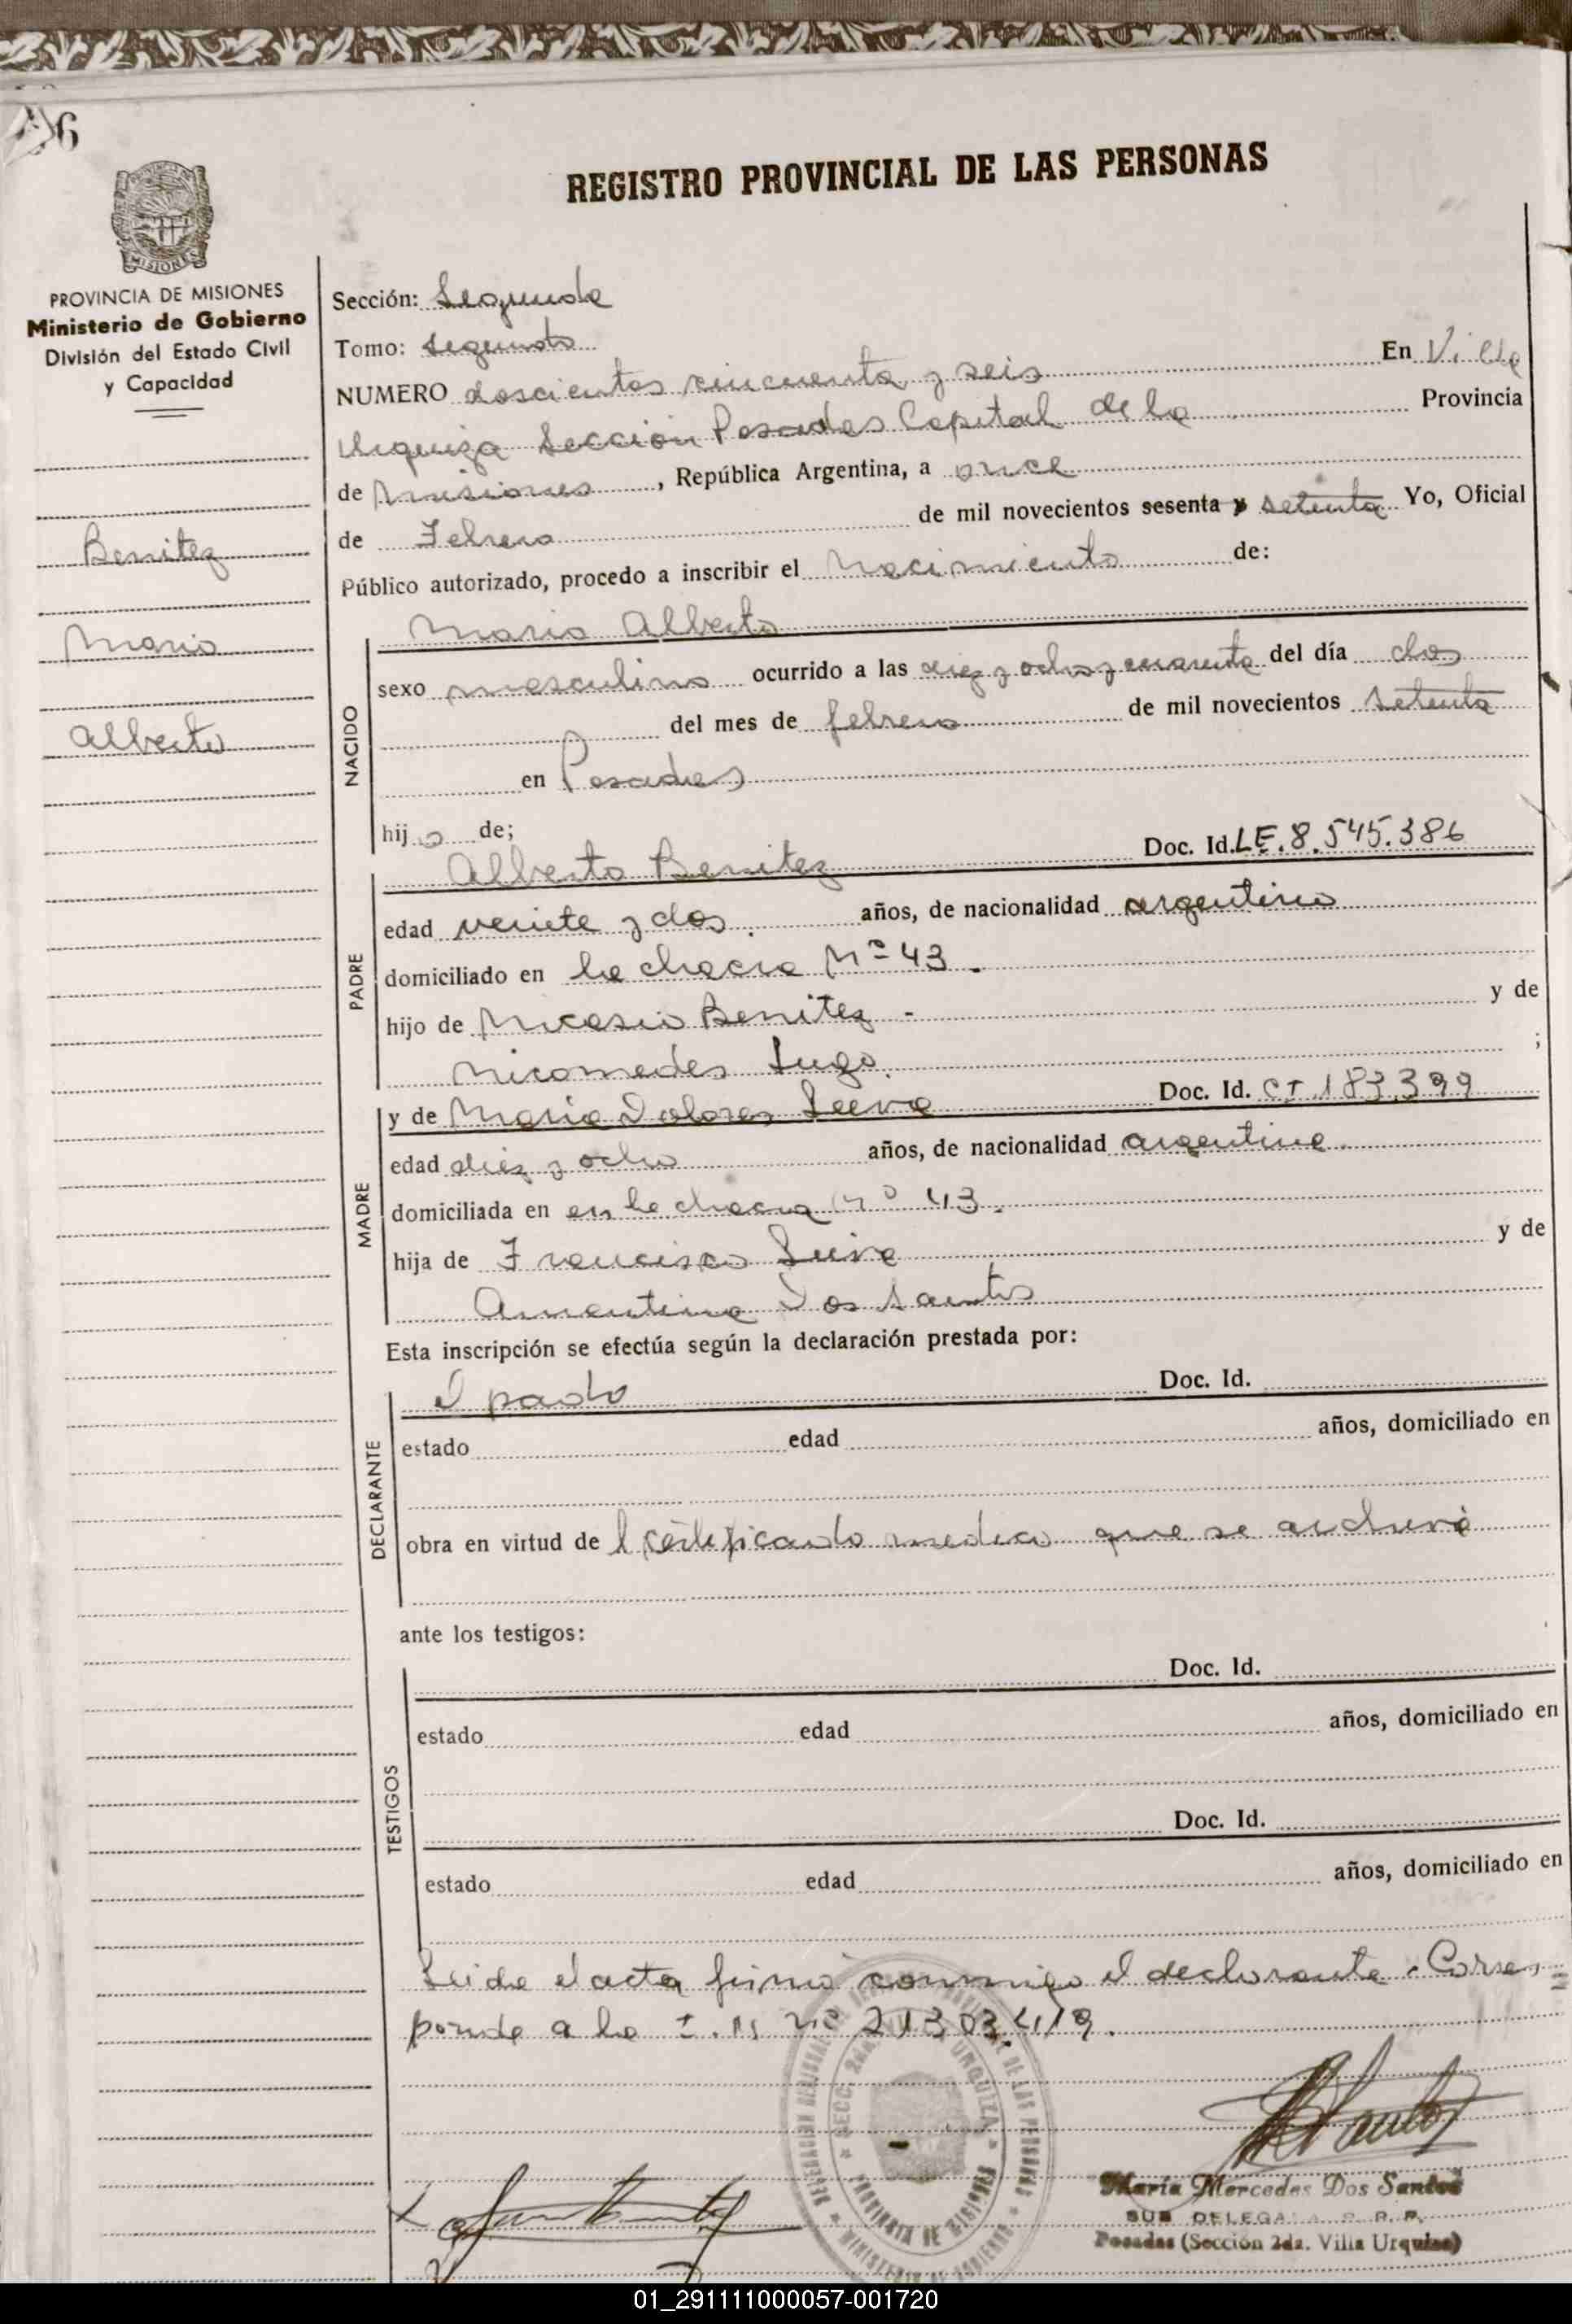 6
REGISTRO PROVINCIAL DE LAS PERSONAS
MISIONES
PROVINCIA DE MISIONES
Ministerio de Gobierno
División del Estado Civil
y Capacidad
Benitez
Mario
Alberto
Sección: Segunda
Tomo: Segundo
NUMERO doscientos cincuenta y seis En Villa
Urquiza Sección Posadas Capital de la Provincia
de Misiones, República Argentina, a once
de Febrero de mil novecientos sesenta y setenta Yo, Oficial
Público autorizado, procedo a inscribir el Nacimiento de:
NACIDO
Mario Alberto
sexo masculino ocurrido a las diez y ocho y cuarenta del día dos
del mes de febrero de mil novecientos setenta
en Posadas
hijo de;
PADRE
Alberto Benitez Doc. Id. LE. 8.545.386
edad veinte y dos. años, de nacionalidad argentino
domiciliado en la chacra Nº 43.
hijo de Nicasio Benitez - y de
Nicomedes Lugo. ;
MADRE
y de Maria Dolores Doc. Id. CI. 183.399
edad diez y ocho años, de nacionalidad argentina.
domiciliada en en la chacra Nº 43.
hija de Francisco y de
Dos Santos
Esta inscripción se efectúa según la declaración prestada por:
DECLARANTE
el padre Doc. Id.
estado edad años, domiciliado en
obra en virtud del certificado medico que se archiva
ante los testigos:
TESTIGOS
Doc. Id.
estado edad años, domiciliado en
Doc. Id.
estado edad años, domiciliado en
Leida el acta firmó conmigo el declarante. Corres=
ponde a la nº 21303419.
SECC. 2da. URQUIZA
PROVINCIA DE MISIONES
María Mercedes Dos Santos
SUB DELEGADA R. P. P.
Posadas (Sección 2da. Villa Urquiza)
01_291111000057-001720